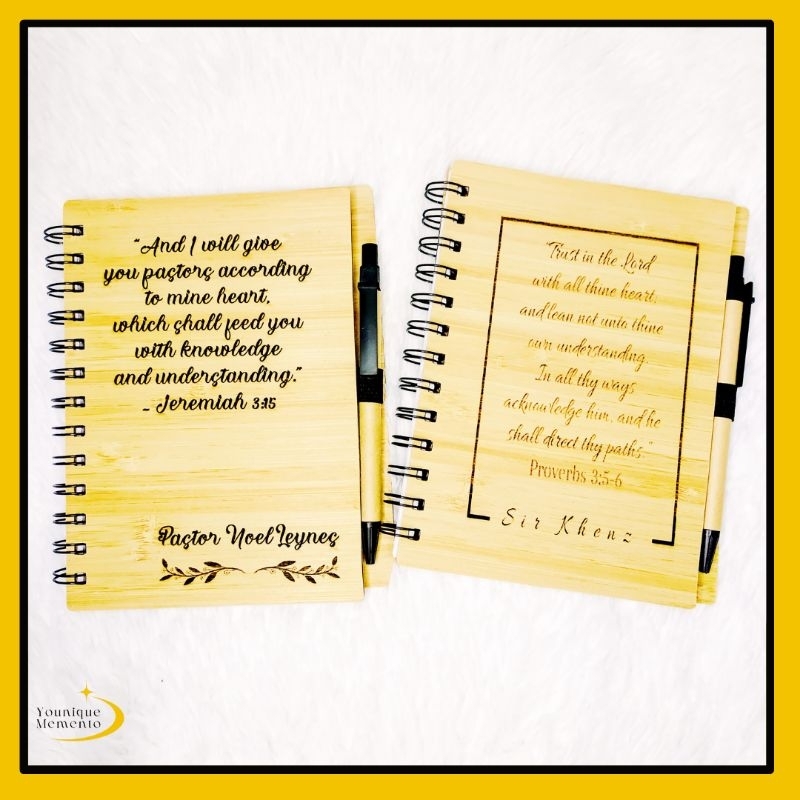 “And I will give
you pastors according
to mine heart,
which shall feed you
with knowledge
and understanding.”
- Jeremiah 3:15
Pastor Noel Leynes
“Trust in the Lord
with all thine heart,
and lean not unto thine
own understanding.
In all thy ways
acknowledge him, and he
shall direct thy paths.”
Proverbs 3:5-6
Sir Khenz
Younique
Memento